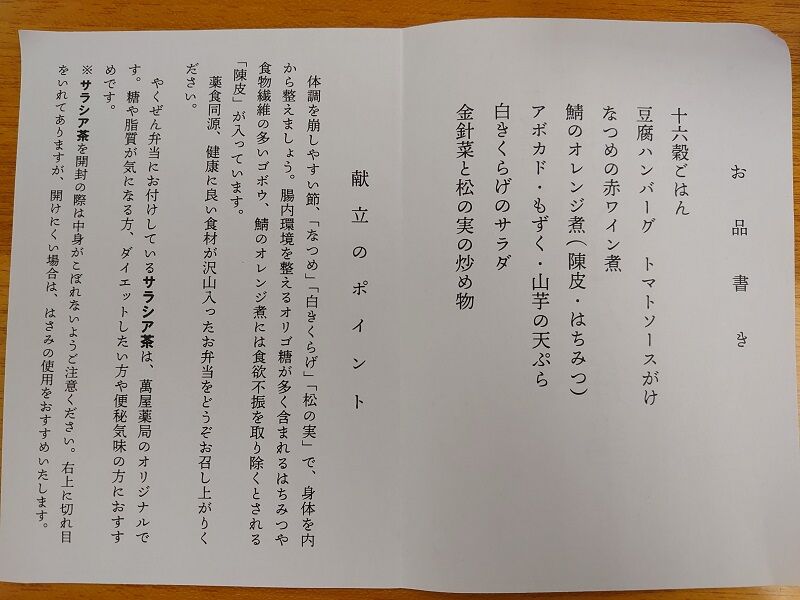 お品書き
十六穀ごはん
豆腐ハンバーグ　トマトソースがけ
なつめの赤ワイン煮
鯖のオレンジ煮（陳皮・はちみつ）
アボカド・もずく・山芋の天ぷら
白きくらげのサラダ
金針菜と松の実の炒め物
献立のポイント
体調を崩しやすい節、「なつめ」「白きくらげ」「松の実」で、身体を内
から整えましょう。腸内環境を整えるオリゴ糖が多く含まれるはちみつや
食物繊維の多いゴボウ、鯖のオレンジ煮には食欲不振を取り除くとされる
「陳皮」が入っています。
薬食同源、健康に良い食材が沢山入ったお弁当をどうぞお召し上がりく
ださい。
やくぜん弁当にお付けしているサラシア茶は、萬屋薬局のオリジナルで
す。糖や脂質が気になる方、ダイエットしたい方や便秘気味の方におすす
めです。
※サラシア茶を開封の際は中身がこぼれないようご注意ください。右上に切れ目
をいれてありますが、開けにくい場合は、はさみの使用をおすすめいたします。